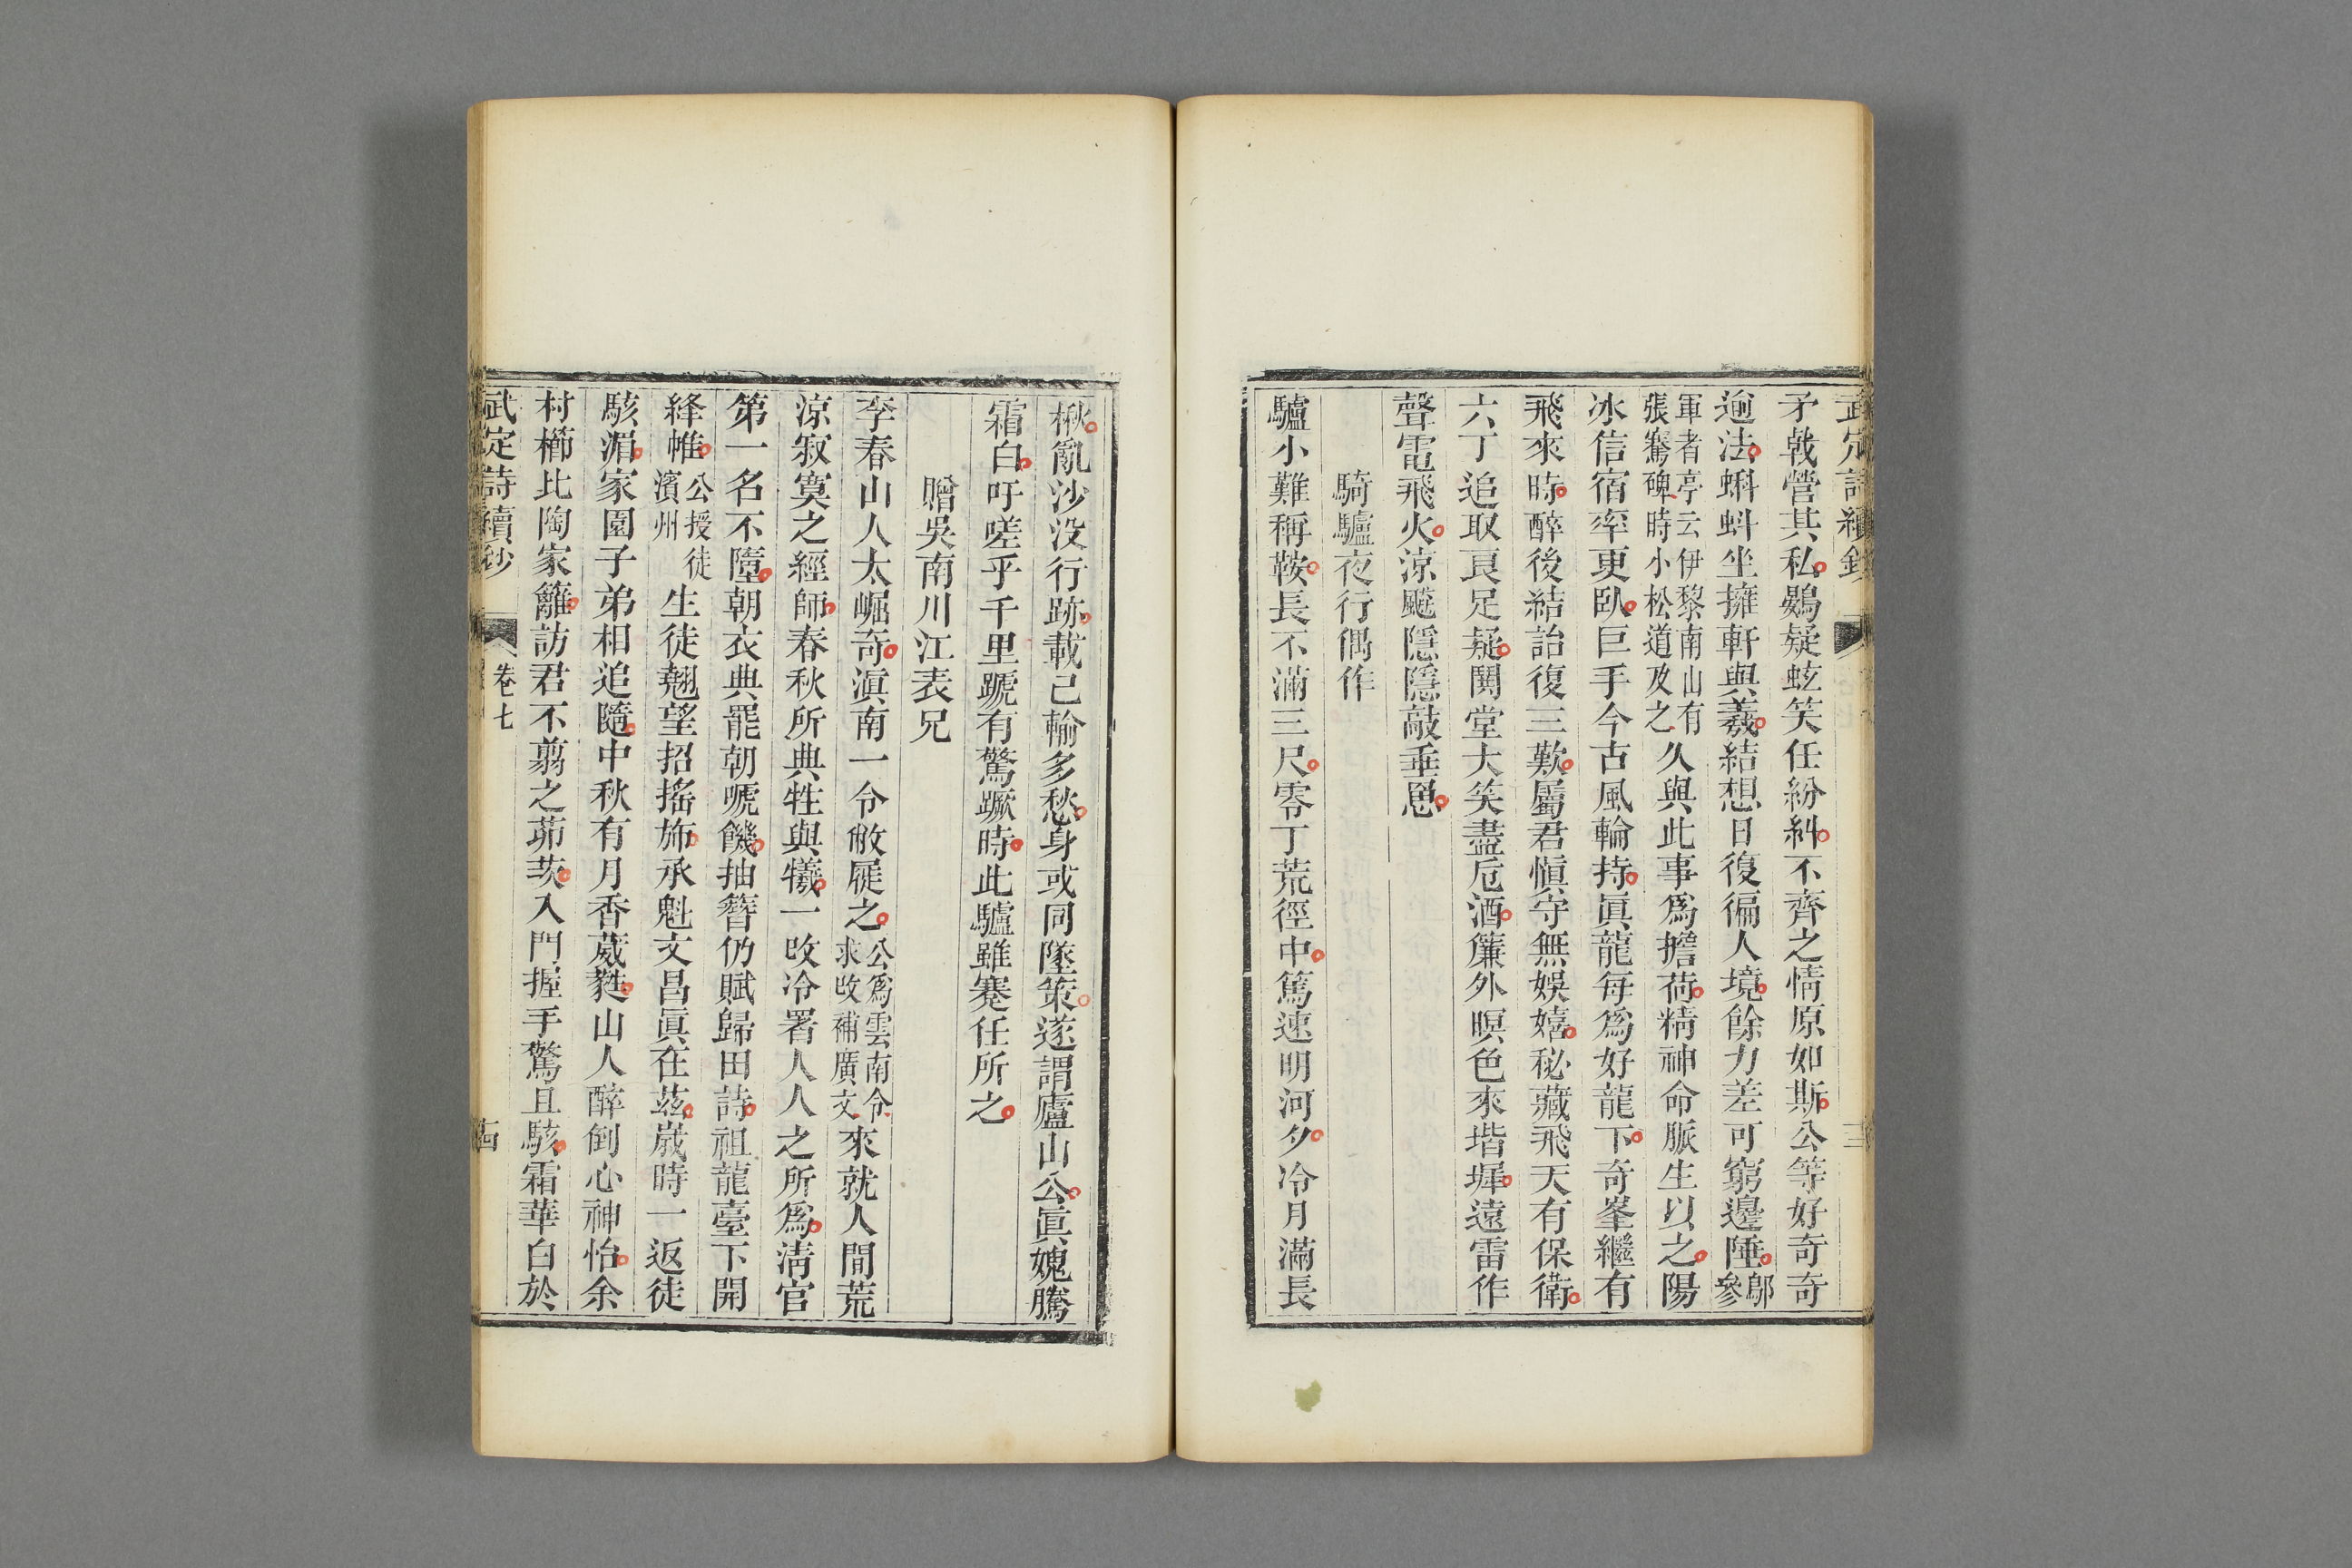 武定詩續鈔
矛戟營其私鷃疑蚿笑任紛糾不齊之情原如斯公等好奇奇
逾法蝌蚪坐擁軒與羲結想日復徧人境餘力差可窮邊陲鄔參
軍者亭云伊黎南山有
張騫碑時小松道及之久與此事爲擔荷精神命脈生以之陽
冰信宿率更臥巨手今古風輪持眞龍每爲好龍下奇峯繼有
飛來時醉後結詒復三歎屬君愼守無娛嬉秘藏飛天有保衛
六丁追取良足疑閧堂大笑盡卮酒簾外暝色來堦墀遠雷作
聲電飛火涼颸隱隱敲垂罳
騎驢夜行偶作
驢小難稱鞍長不滿三尺零丁荒徑中篤速明河夕冷月滿長
楸亂沙没行跡載己輸多愁身或同墜策遂謂廬山公眞媿騰
霜白吁嗟乎千里蹏有驚蹶時此驢雖蹇任所之
贈吳南川江表兄
李春山人太崛奇滇南一令敝屣之公爲雲南令
求改補廣文來就人間荒
涼寂寞之經師春秋所典牲與犧一改冷署人人之所爲淸官
第一名不墮朝衣典罷朝嘑饑抽簪仍賦歸田詩祖龍臺下開
絳帷公授徒
濱州生徒翹望招搖旆承魁文昌眞在茲歲時一返徒
駭湄家園子弟相追隨中秋有月香葳蕤山人醉倒心神怡余
村櫛比陶家籬訪君不翦之茆茨入門握手驚且駭霜華白於
武定詩續鈔 卷七 十四